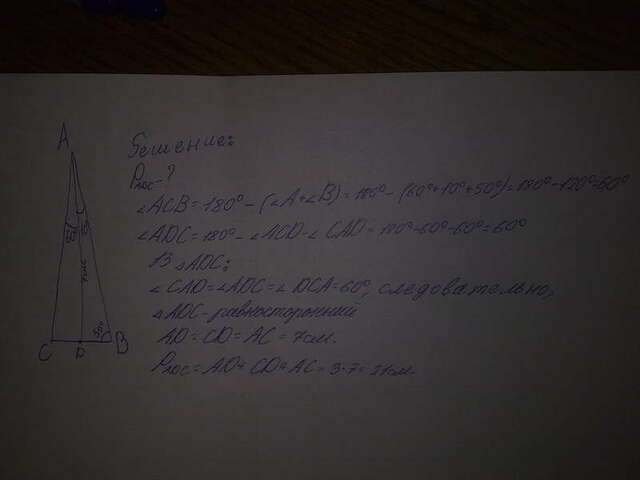 A
Решение:
P ADC - ?
∠ACB = 180° - (∠A+∠B) = 180° - (60°+10°+50°) = 180° - 120° = 60°
∠ADC = 180° - ∠ACD - ∠CAD = 180° - 60° - 60° = 60°
В △ADC:
∠CAD = ∠ADC = ∠DCA = 60°, следовательно,
△ADC - равносторонний
AD = CD = AC = 7см.
P ADC = AD + CD + AC = 3·7 = 21см.
7см
50°
C D B